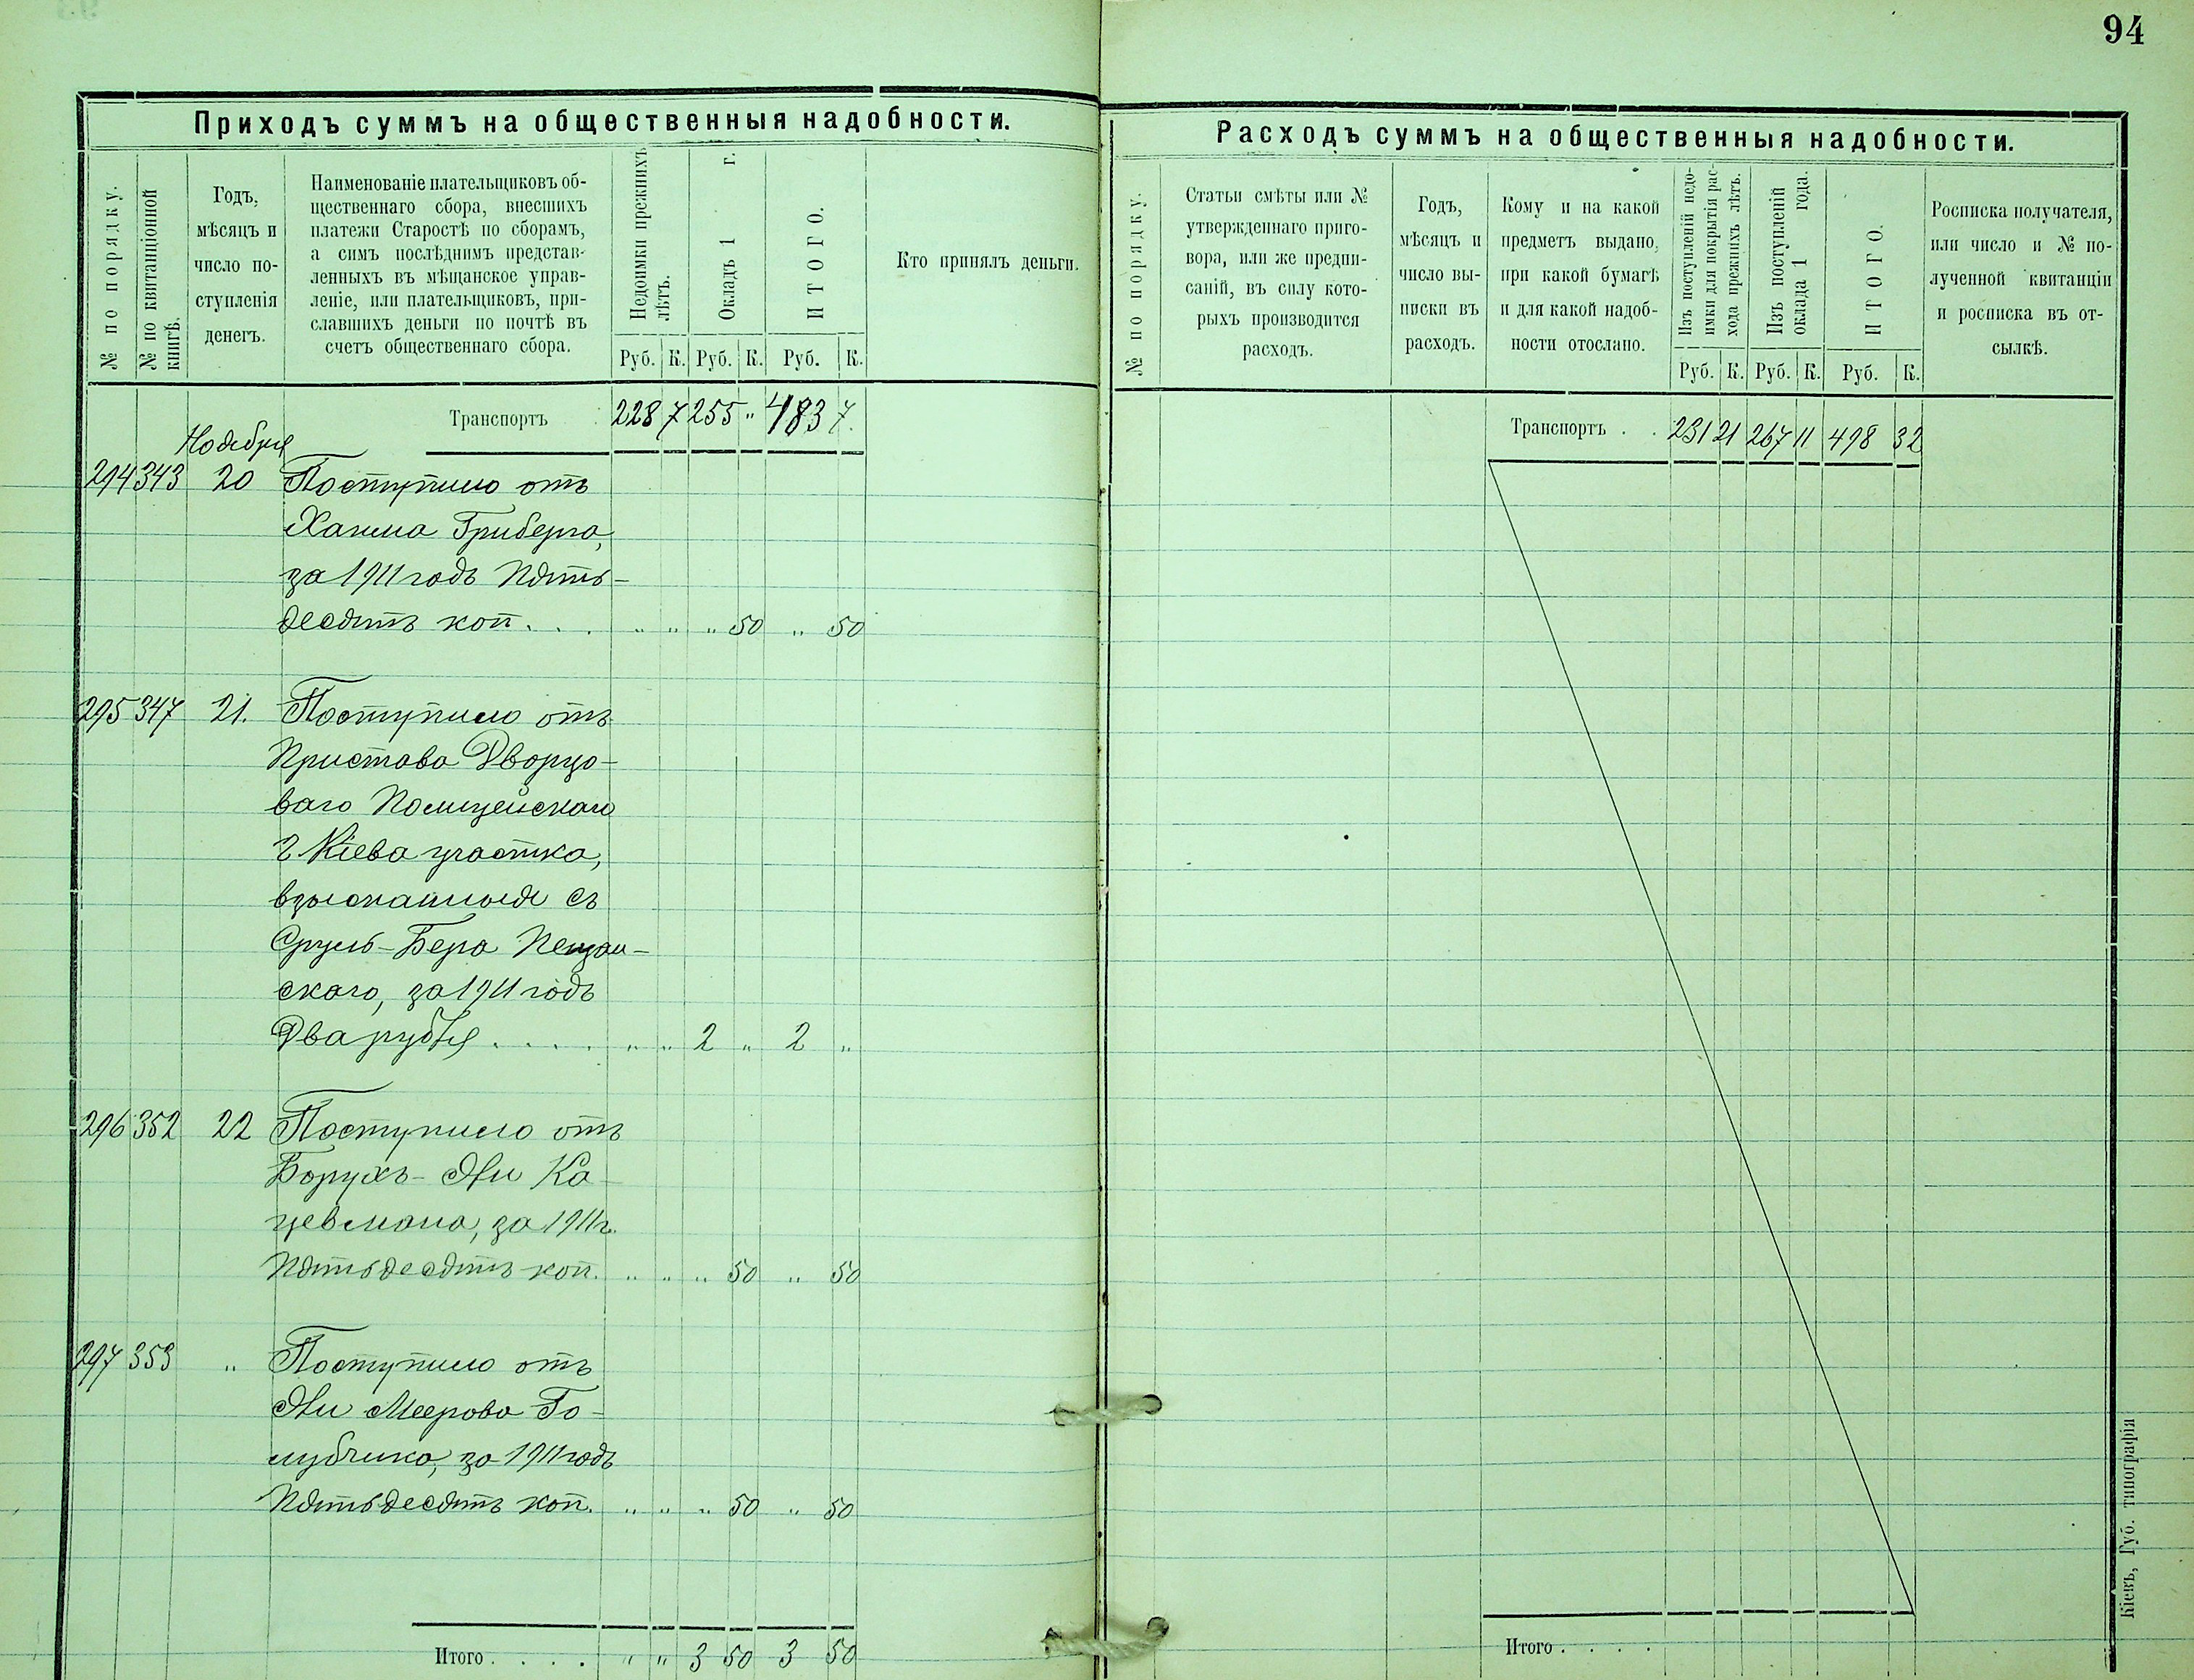 94
Приходъ суммъ на общественныя надобности.
№ по порядку.
№ по квитанціонной
книгѣ.
Годъ,
мѣсяцъ и
число по-
ступленія
денегъ.
Наименованіе плательщиковъ об-
щественнаго сбора, внесшихъ
платежи Старостѣ по сборамъ,
а симъ послѣднимъ представ-
ленныхъ въ мѣщанское управ-
леніе, или плательщиковъ, при-
славшихъ деньги по почтѣ въ
счетъ общественнаго сбора.
Недоимки прежнихъ
лѣтъ.
Окладъ 1 г.
ИТОГО.
Руб. К. Руб. К. Руб. К.
Кто принялъ деньги.
Транспортъ 228 7 255 " 483 7.
Ноября
294 343 20 Поступило отъ
Хаима Гриберга,
за 1911 годъ Пять-
десятъ коп. . . . " " " 50 " 50
295 347 21. Поступило отъ
Пристава Дворцо-
ваго Полицейскаго
г Кіева участка,
взысканныя съ
Сруль-Бера Пещан-
скаго, за 1911 годъ
Два рубля . . . . " " 2 " 2 "
296 352 22 Поступило отъ
Борухъ-Ян Ка-
цевмана, за 1911 г.
Пятьдесятъ коп. " " " 50 " 50
297 353 " Поступило отъ
Яни Меерова Го-
лубчика, за 1911 годъ
Пятьдесятъ коп. " " " 50 " 50
Итого . . . . " " 3 50 3 50
Расходъ суммъ на общественныя надобности.
№ по порядку.
Статьи смѣты или №
утвержденнаго приго-
вора, или же предпи-
саній, въ силу кото-
рыхъ производится
расходъ.
Годъ,
мѣсяцъ и
число вы-
писки въ
расходъ.
Кому и на какой
предметъ выдано,
при какой бумагѣ
и для какой надоб-
ности отослано.
Изъ поступленій недо-
имки для покрытія рас-
хода прежнихъ лѣтъ.
Изъ поступленій
оклада 1 года.
ИТОГО.
Руб. К. Руб. К. Руб. К.
Росписка получателя,
или число и № по-
лученной квитанціи
и росписка въ от-
сылкѣ.
Транспортъ . . 231 21 267 11 498 32
Итого . . . .
Кіевъ, Губ. типографія